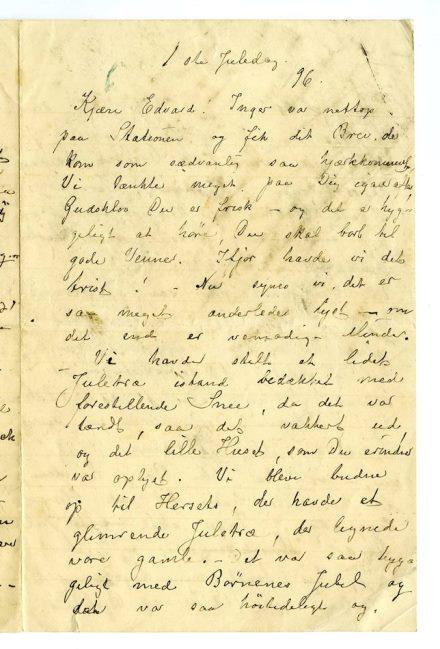 1 ste Juledag.
96.
Kjære Edvard! Inger var nettop
paa Stationen og fik dit Brev, de
kom som sædvanlig saa hjærkkomment
Vi tænkte meget paa Dig igaar aften
Gudskelov Du er frisk – og det er hygge
geligt at høre, Du skal bort til
gode Venner. Ifjor havde vi det
trist! – Nu synes vi, det er
saa meget anderledes lyst – om
det end er vemodige Minder.
Vi havde stelt et lidet
Juletræ istand bedækket med
forestillende Snee, da det var
tændt, saa det vakkert ud
og det lille Huset, som Du erindrer
var oplyst. Vi bleve budne
op til Hersets, der havde et
glimrende Juletræ, der lignede
vore gamle. – Det var saa hyg
geligt med Børnenes Jubel og
var saa høitideligt og.